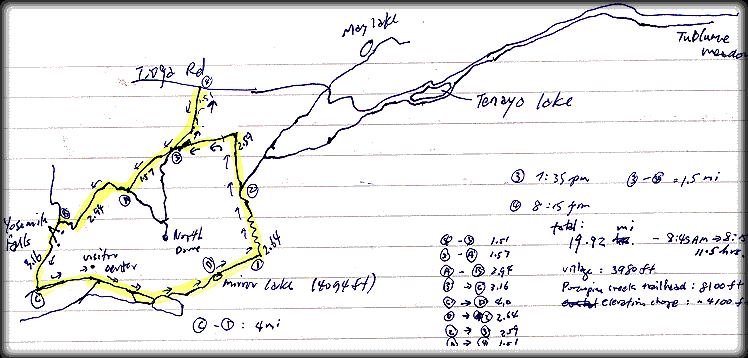 May lake
Tuolumne
meadow
Tioga Rd
④
1.51
Tenaya lake
③
2.59
1.57
②
③ 7:35 pm ③-④ = 1.5 mi
④ 8:15 pm
2.94
Yosemite
falls
North
Dome
total: mi
19.92 - 8:45 AM → 8:15
11.5 hrs.
3.16
visitor
center
2.64
①
mirror lake (4094 ft)
village: 3980 ft
Porcupine creek trailhead: 8100 ft
elevation change: ~4100 ft
⑥-①: 4 mi
1.51
1.57
2.94
3.16
4.0
2.64
2.59
1.51